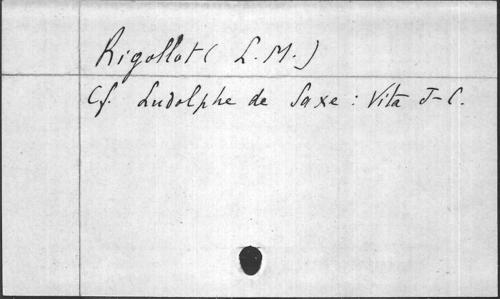 Rigollot (L. M.)
Cf. Ludolphe de Saxe : Vita J-C.